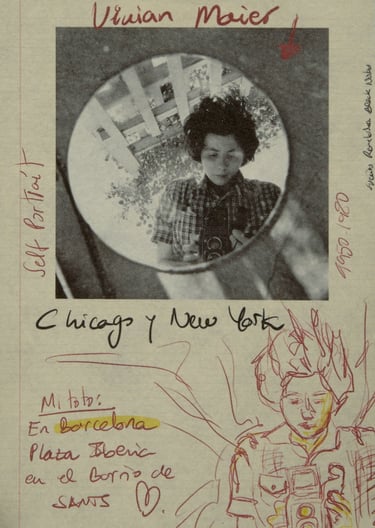 Vivian Maier
Self Portrait
1950-1980
Chicago y New York
Mi foto:
En Barcelona
Plaza Iberia
en el Barrio de
SANTS